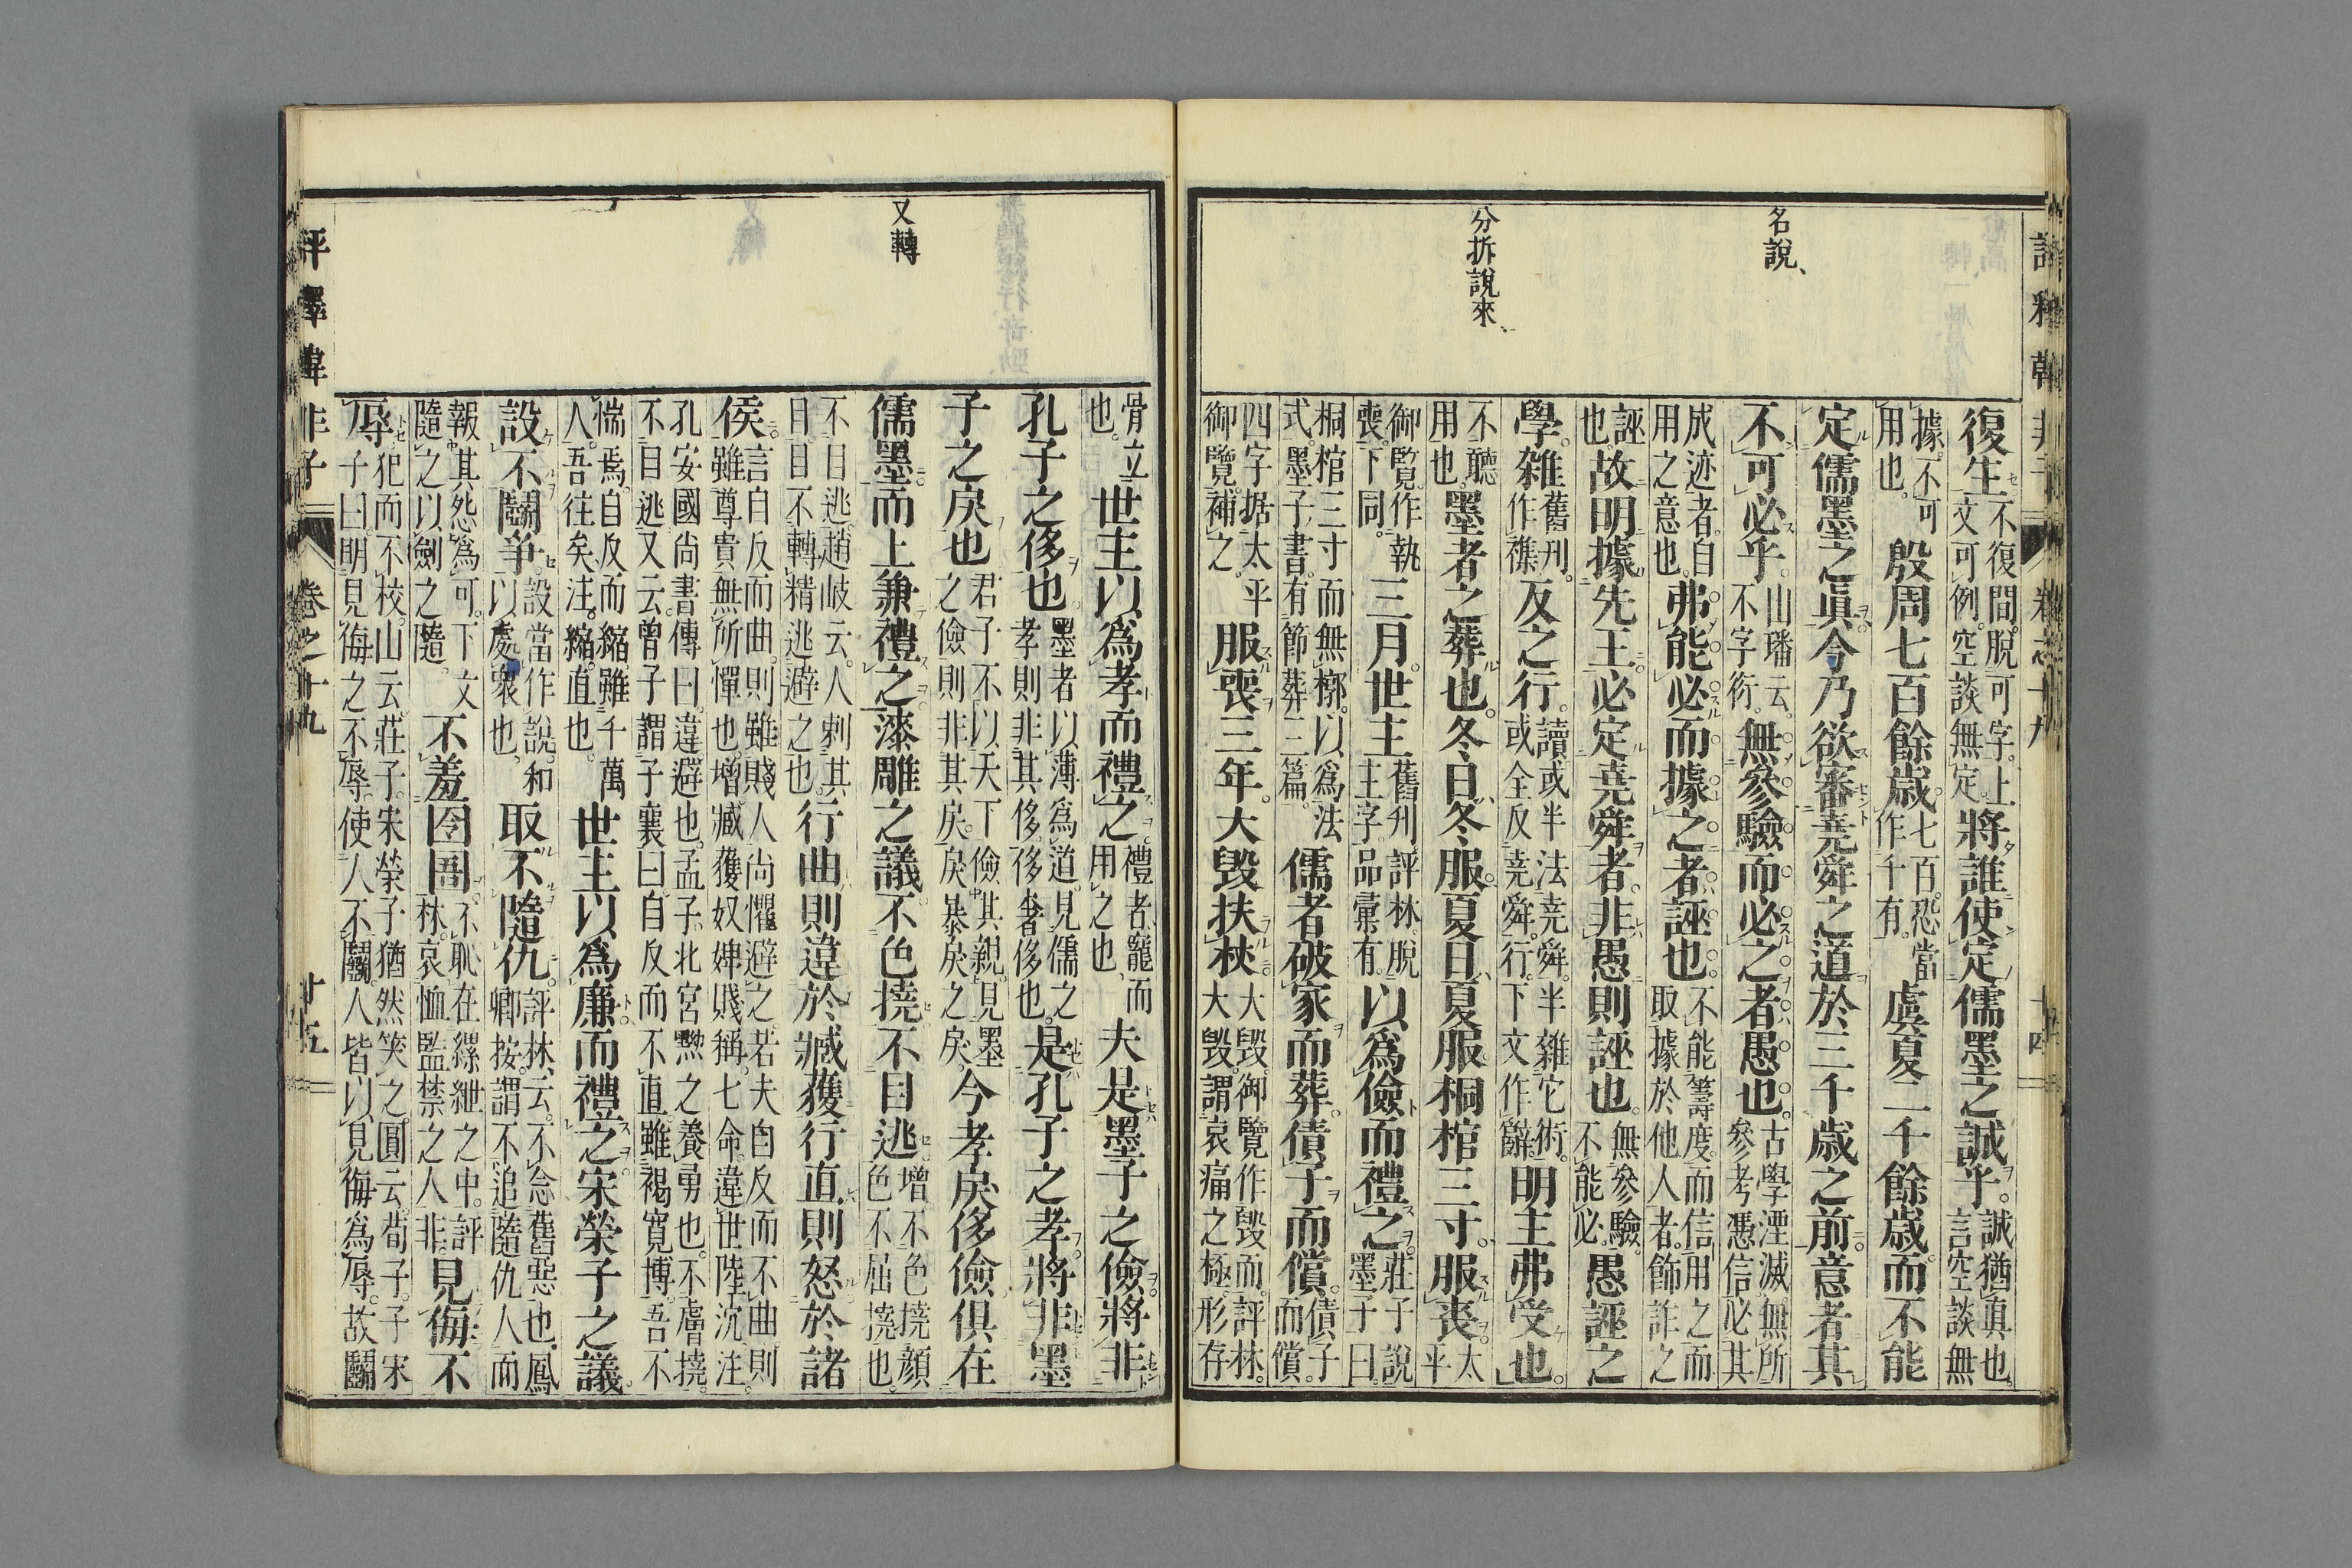 名說、
分拆說來
復生不復間。脫可字。上文可例。空談無定。將誰使定儒墨之誠乎。誠猶眞也。言空談無
據。不可用也。殷周七百餘歲。七百。恐當作千有。虞夏二千餘歲。而不能
定儒墨之眞。今乃欲審堯舜之道於三千歲之前意者其
不可必乎。山璠云。不字衍。無參驗而必之者愚也。古學湮滅無所參考憑信必其
成迹者。自用之意也。弗能必而據之者。誣也。不能籌度。而信用之而取據於他人者。飾詐之
誣也。故明據先王必定堯舜者。非愚則誣也。無參驗。不能必。愚誣之
學。雜舊刊。作襍反之行。讀或半法堯舜。半雜它術。或全反堯舜。行。下文作辭。明主弗受也。
不聽用也。墨者之葬也。冬日冬服。夏日夏服桐棺三寸。服喪。太平
御覽。作執喪。下同。三月。世主舊刊評林。脫主字。品彙有。以爲儉而禮之。莊子說墨子曰。
桐棺三寸而無槨。以爲法式。墨子書。有節葬三篇。儒者破家而葬。債子而償。債子而償。
四字据太平御覽。補之。服喪三年。大毀扶杖大毀。御覽作毀而。評林。大毀。謂哀痛之極。形存
又轉
骨立也。世主以爲孝而禮之。禮者。寵而用之也。夫是墨子之儉。將非
孔子之侈也。墨者以薄爲道。見儒之孝則非其侈。侈。奢侈也。是孔子之孝。將非墨
子之戾也君子不以天下儉其親。見墨之儉則非其戾。戾。暴戾之戾。今孝戾侈儉俱在
儒墨而上兼禮之。漆雕之議。不色撓。不目逃。增不色撓顏色不屈撓也。
不目逃。趙岐云。人刺其目。目不轉精逃避之也。行曲則違於臧獲行直則怒於諸
侯。言自反而曲。則雖賤人尚懼避之。若夫自反而不曲則雖尊貴無所憚也。增臧獲奴婢賤稱。七命。違世陸沉注。
孔安國尚書傳曰。違避也。孟子。北宮黝之養勇也。不膚撓。不目逃。又云。曾子謂子襄曰自反而不直。雖褐寬博。吾不
惴焉。自反而縮。雖千萬人。吾往矣。注。縮。直也。世主以爲廉而禮之。宋榮子之議。
設不鬭爭。設當作說。和以處衆也。取不隨仇。評林云。不念舊惡也。鳳卿按。謂不追隨仇人而
報其怨爲可。下文隨之以劍之隨。不羞囹圄。不恥在縲紲之中。評林。哀恤監禁之人非。見侮不
辱。犯而不校。山云。莊子。宋榮子猶然笑之。圓云。荀子。子宋子曰。明見侮之不辱。使人不鬭。人皆以見侮爲辱。故鬭
評釋韓非子 卷之十九 廿五